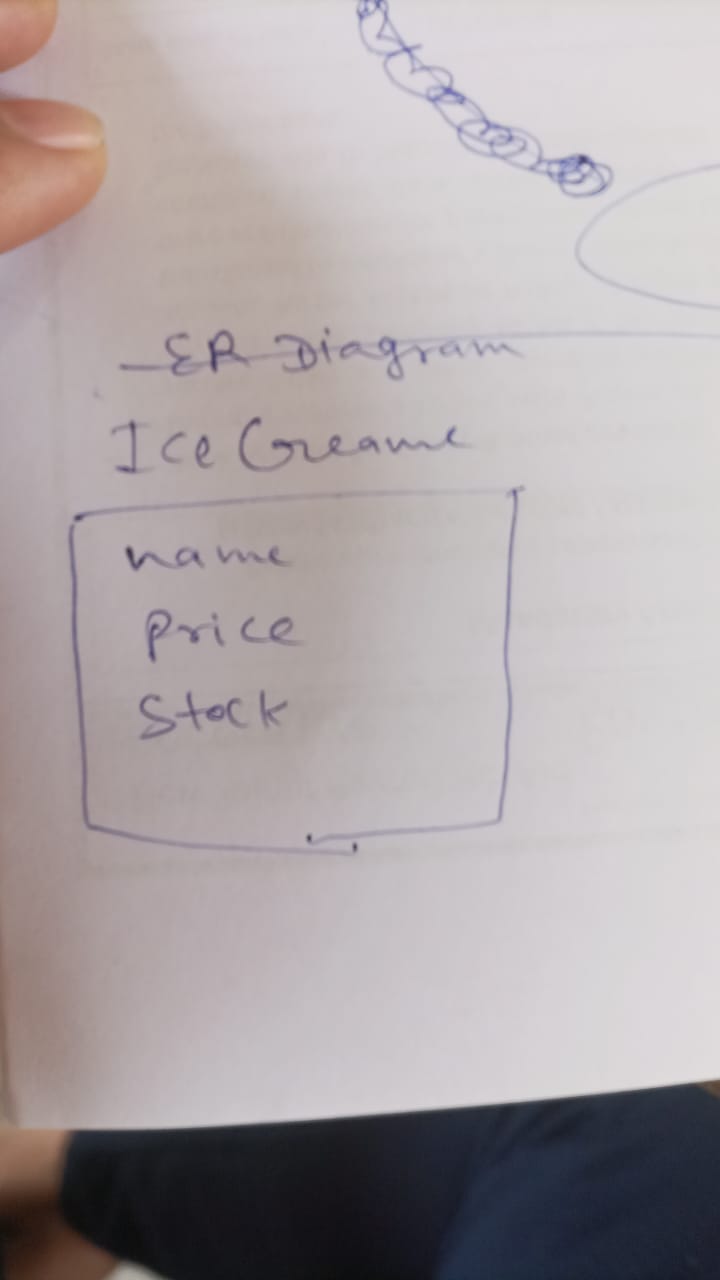 ER Diagram
Ice Creame
name
price
Stock